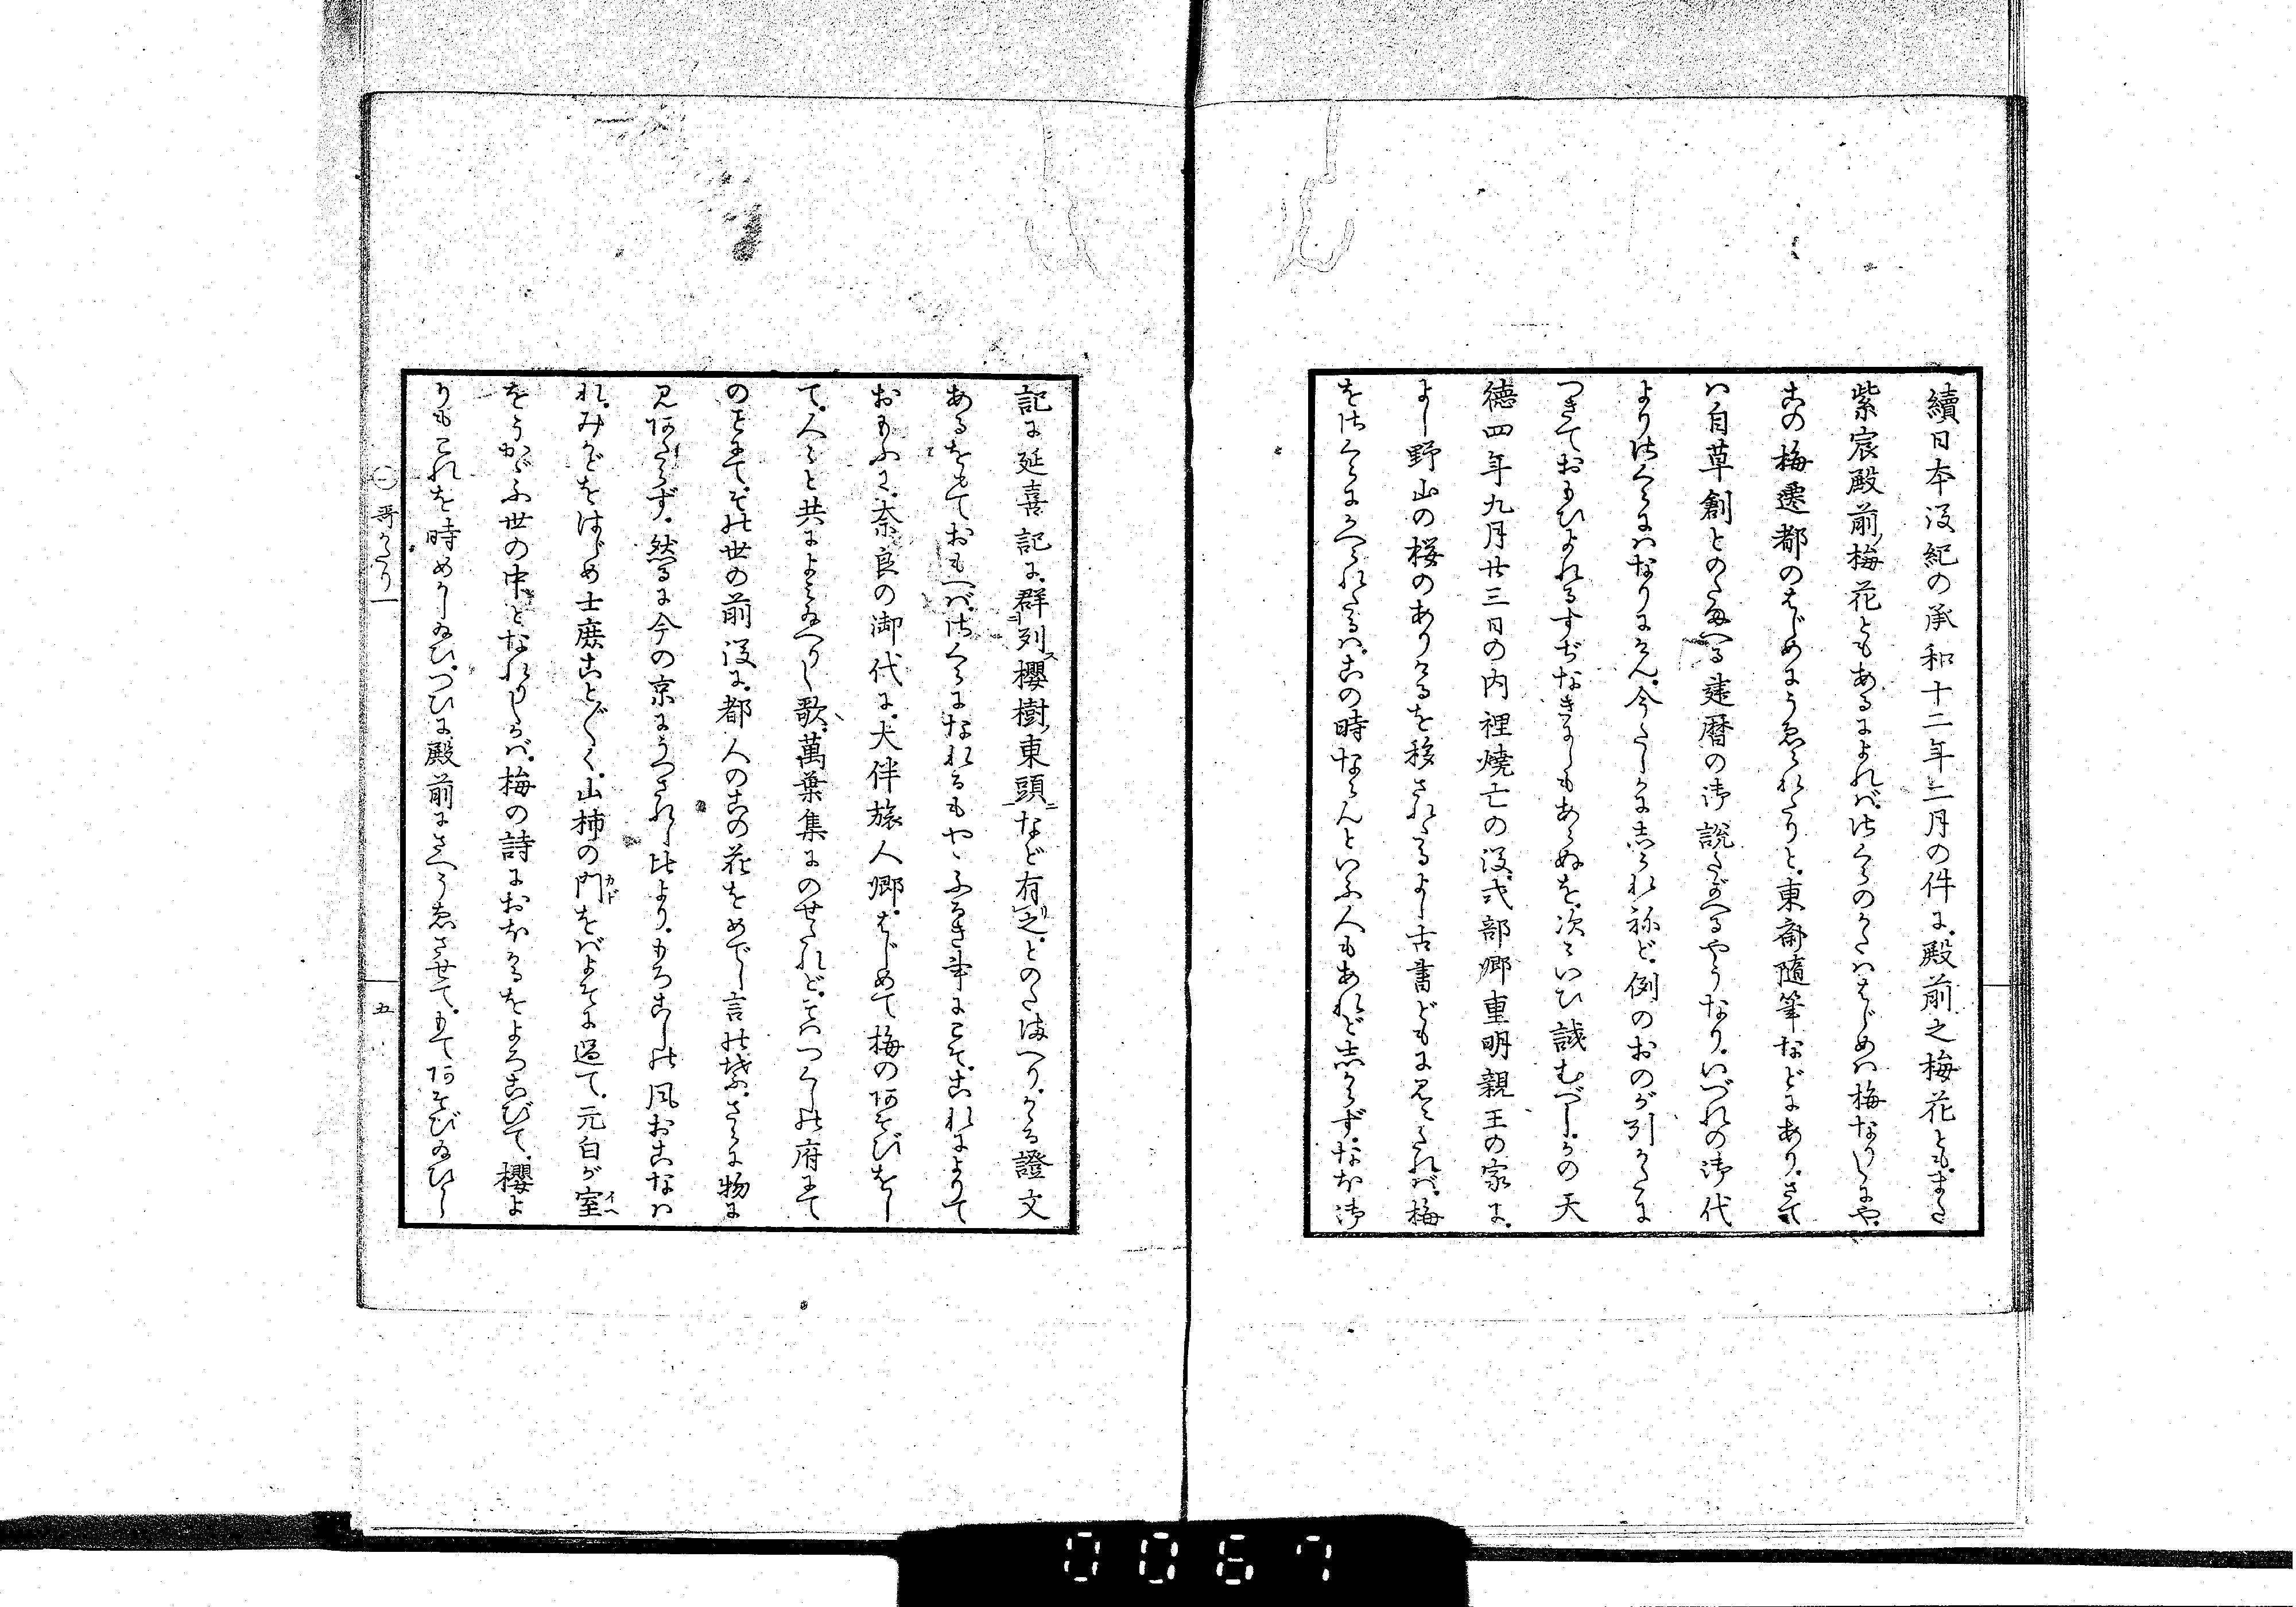 續日本後紀の承和十二年二月の件に殿前之梅花とも。また
紫宸殿前ノ梅花ともあるによれば。さくらのかたはらはじめは梅なりしにや。
この梅遷都のはじめにうゑられたりと。東齋隨筆などにあり。さて
は自草創とのたまへる建暦の御説たがへるやうなり。いづれの御代
よりさくらにはなりにけん。今たしかにしられねど。例のおのが引かたに
つきておもひよれるすぢなきにしもあらぬを。次々いひ試むべし。かの天
徳四年九月廿三日の内裡燒亡の後。式部卿重明親王の家に。
よし野山の桜のありけるを移されたるよし古書どもに見えたれば。梅
をさくらにかへられたるは。この時ならんといふ人もあれどしからず。なほ御
記に延喜記に。群列櫻樹ノ東頭ニなど有之。とのたまへり。かゝる證文
あるをもておもへば。さくらになれるもやゝふるき事にこそ。これによりて
おもふに。奈良の御代に。大伴旅人卿。はじめて梅のあそびをし
て。人々と共によみ給へりし歌。萬葉集にのせられど。こはつくしの府にて
の事にて。その世の前後に。都人のこの花をめでし言のは。さらに物に
見あたらず。然るに今の京にうつされし比より。もろこしの風おこなは
れ。みかどをはじめ士庶ことごとく。山柿の門をばよそに過て。元白が室
をうかゞふ世の中となれりしかば。梅の詩におほかるをよろこびて。櫻よ
りもこれを時めかし給ひ。つひに殿前にさへうゑさせて。もてあそび給ひし
㊀哥かたり一
五
0067